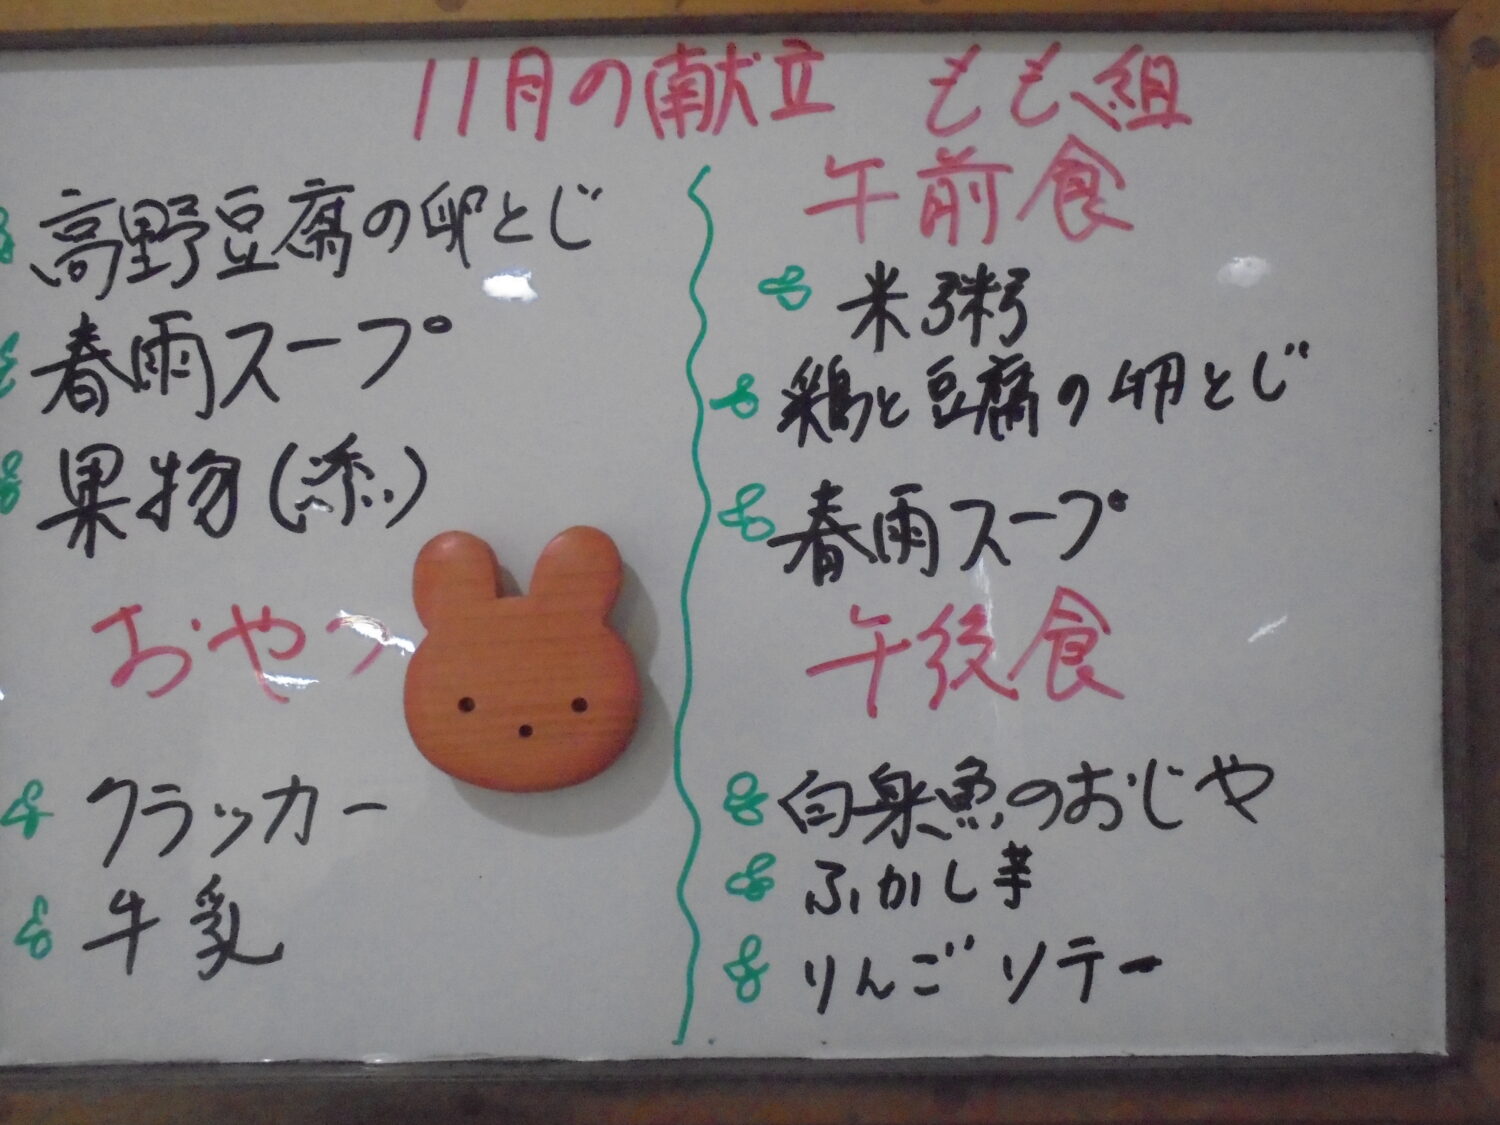 11月の献立 もも組
高野豆腐の卵とじ
春雨スープ
果物(添)
おやつ
クラッカー
牛乳
午前食
米粥
鶏と豆腐の卵とじ
春雨スープ
午後食
白身魚のおじや
ふかし芋
りんごソテー